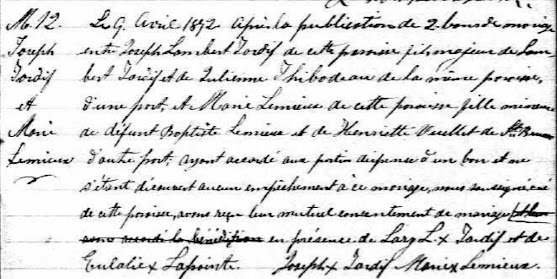 M. 12.
Joseph
Tardif
et
Marie
Lemieux
Le 9 Avril 1872 Après la publication de 2 bans de mariage
entre Joseph Lambert Tardif de cette paroisse fils majeur de Lam
bert Tardif et de Julienne Thibodeau de la même paroisse,
d'une part, et Marie Lemieux de cette paroisse fille mineure
de défunt Baptiste Lemieux et de Henriette Ouellet de
d'autre part; ayant accordé aux parties dispense d'un ban et ne
s'étant découvert aucun empêchement à ce mariage, nous soussigné curé
de cette paroisse, avons reçu leur mutuel consentement de mariage et leur
avons accordé la bénédiction en présence de L x Tardif et de
Eulalie x Lapointe. Joseph x Tardif Marie x Lemieux.